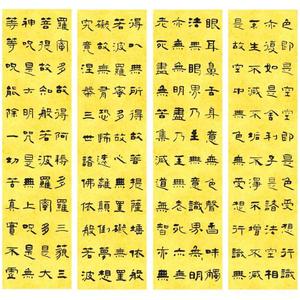 色即是空空即是色受想行識
亦復如是舍利子是諸法空相
不生不滅不垢不淨不增不減
是故空中無色無受想行識無
眼耳鼻舌身意無色聲香味觸
法無眼界乃至無意識界無無明
亦無無明盡乃至無老死亦無
老死盡無苦集滅道無智亦無
得以無所得故菩提薩埵依般
若波羅蜜多故心無罣礙無罣
礙故無有恐怖遠離顛倒夢想
究竟涅槃三世諸佛依般若波
羅蜜多故得阿耨多羅三藐三
菩提故知般若波羅蜜多是大
神咒是大明咒是無上咒是無
等等咒能除一切苦真實不虛